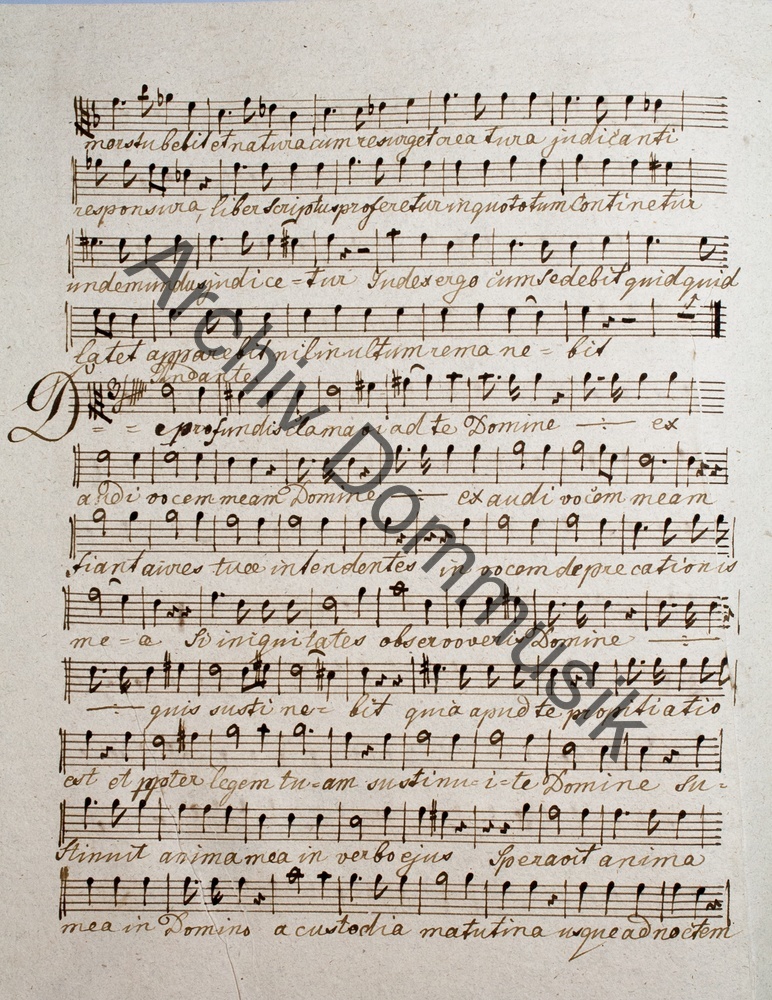 mors stubebit et natura cum resurget creatura judicanti
responsura, liber scriptus proferetur in quo totum Continetur
unde mundus judice = tur Judex ergo cum sedebit quidquid
latet apparebit nil inultum remane = bit
Andante
De profundis clamavi ad te Domine ex
audi vocem meam Domine exaudi vocem meam
fiant aures tuæ intendentes in vocem deprecationis
me = a Si iniquitates observaveris Domine
quis sustine = bit quia apud te propitiatio
est et propter legem tu = am sustinu = i = te Domine su =
stinuit anima mea in verbo ejus Speravit anima
mea in Domino a custodia matutina usque ad noctem
Archiv Dommusik